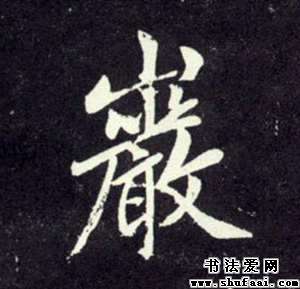 巖
书法爱网
www.shufaai.com